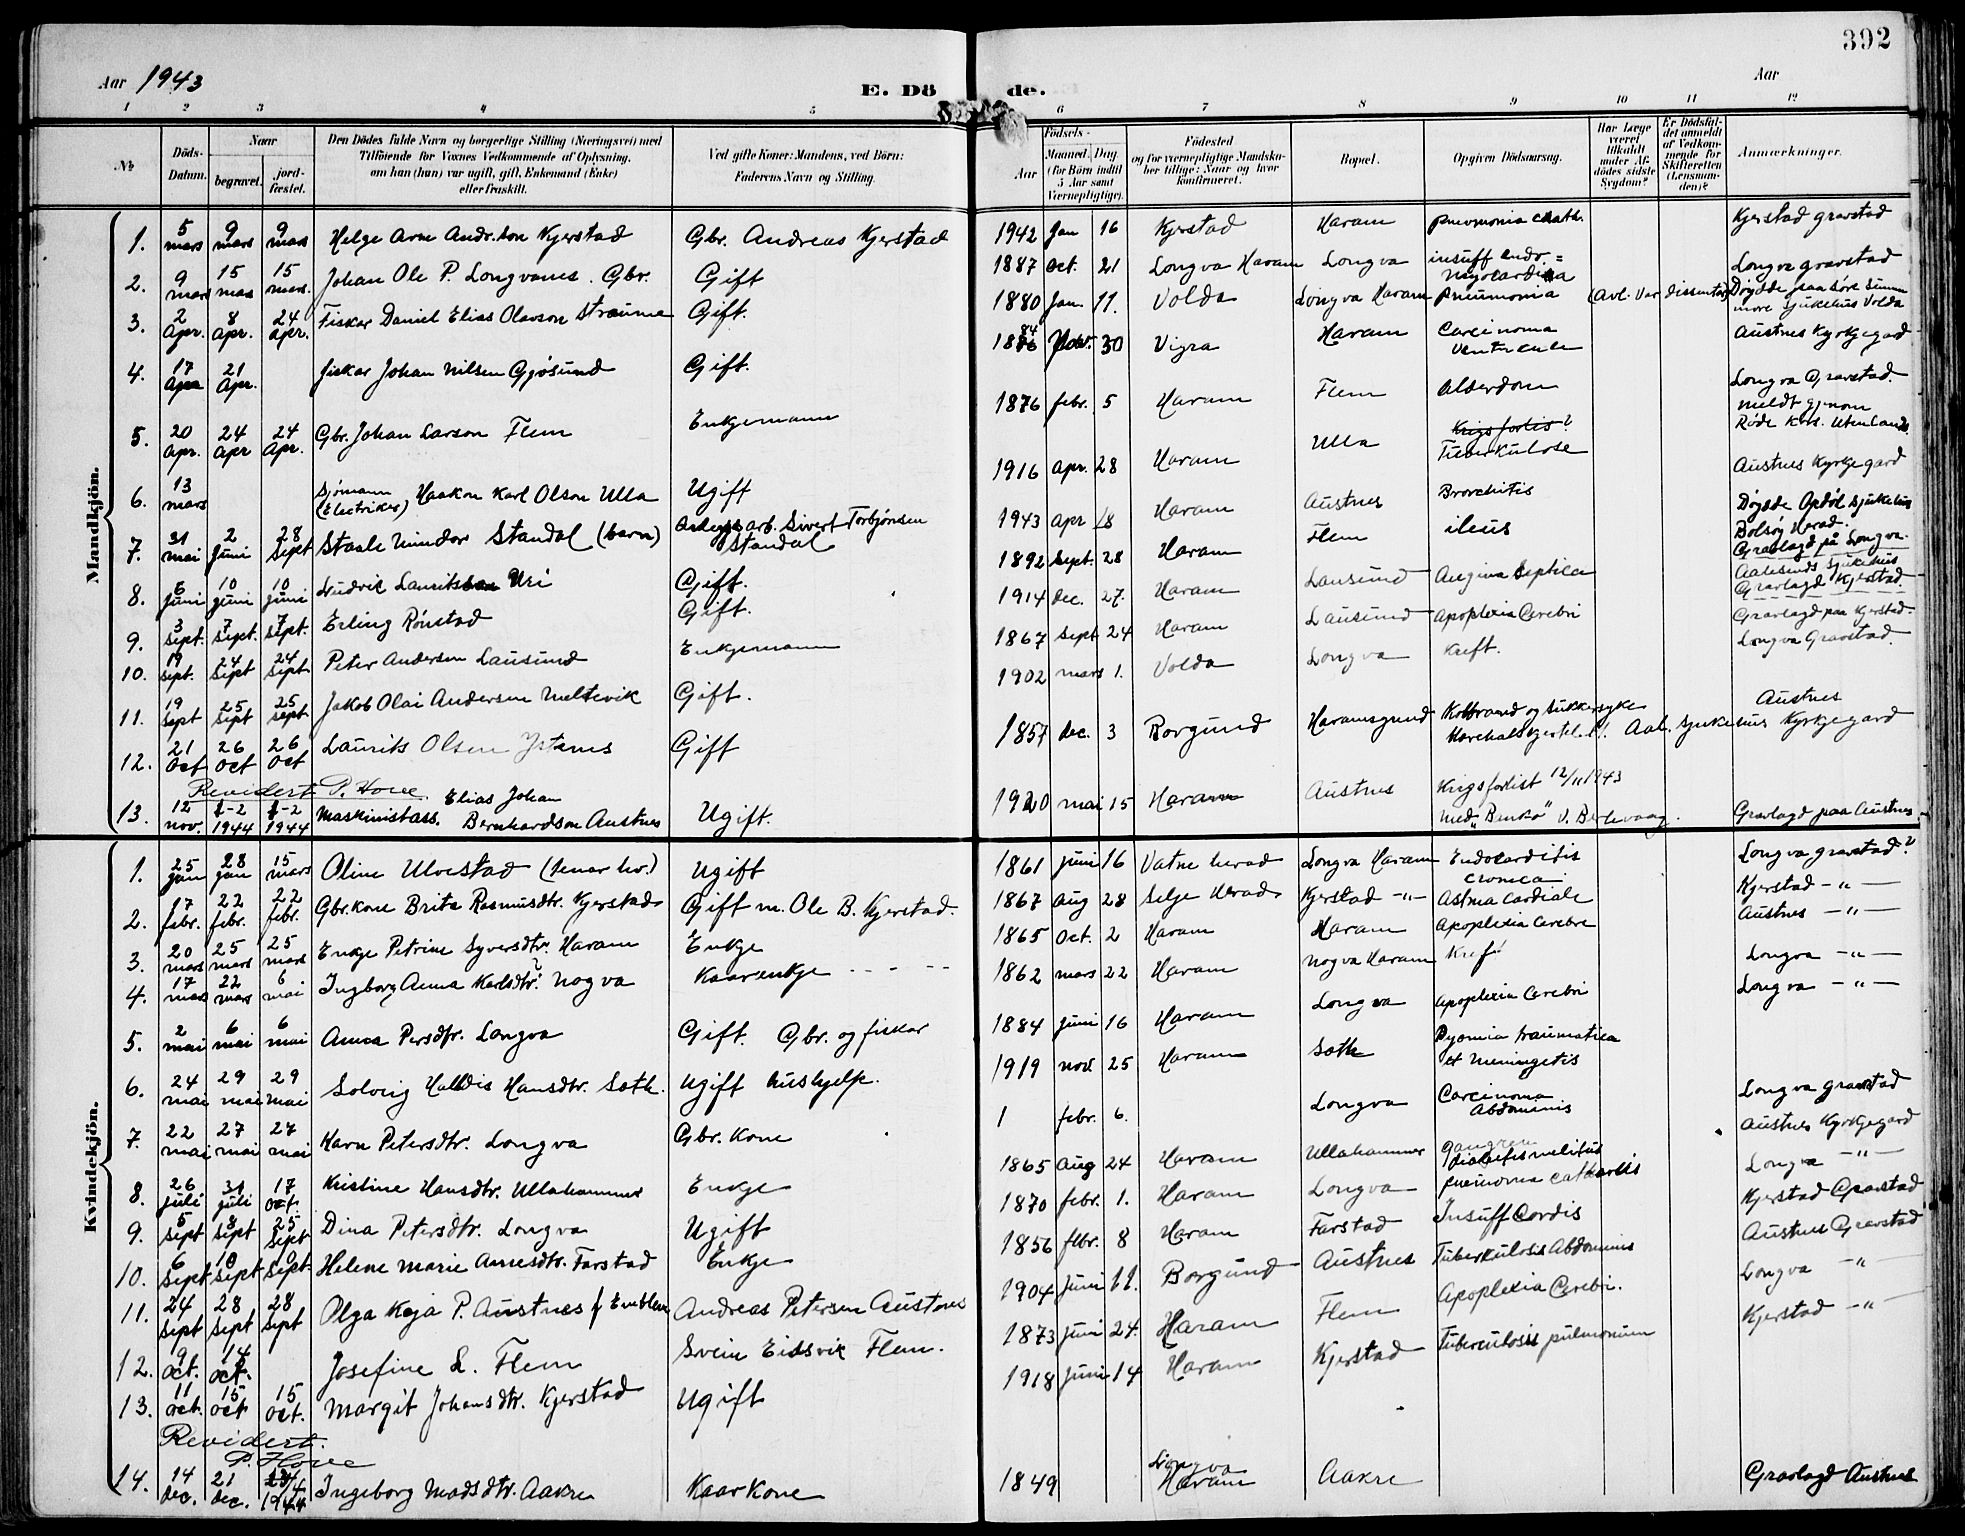 392
Aar 1943
E. Dö de.
Aar
1 2 3 4 5 6 7 8 9 10 11 12
№
Döds-Datum.
Naar
begravet.
jord-fæstet.
Den Dödes fulde Navn og borgerlige Stilling (Næringsvei) med
Tilföiende for Voxnes Vedkommende af Oplysning,
om han (hun) var ugift, gift, Enkemand (Enke)
eller fraskilt.
Ved gifte Koner: Mandens, ved Börn:
Faderens Navn og Stilling.
Födsels-
Aar
Maaned. Dag
(for Börn indtil
5 Aar samt
Værnepligtige).
Födested
og for værnepligtige Mandska-
ber tillige: Naar og hvor
konfirmeret.
Bopæl.
Opgiven Dödsaarsag.
Har Læge
været
tilkaldt
under Af-
dödes sidste
Sygdom?
Er Dödsfal-
det anmeldt
af Vedkom-
mende for
Skifteretten
(Lensman-
den)?
Anmærkninger.
Mandkjön.
1. 5 mars 9 mars 9 mars Helge Arne Andr.son Kjerstad Gbr. Andreas Kjerstad 1942 Jan 16 Kjerstad Haram pneumonia Kjerstad gravstad
2. 9 mars 15 mars 15 mars. Johan Ole P. Longvanes. Gbr. Gift 1887 Oct. 21 Longva Haram Longva insuff endo.= myocardica Longva gravstad
3. 2 Apr. 8 apr. 24 apr. Fiskar Daniel Elias Olavson Straume Gift. 1880 Jan. 11. Volda Longva Haram Pneumonia (Avl. var dissentar) Döydde paa Söre Sunnmöre Sjukehus Volda
4. 17 Apr 21 Apr. fiskar Johan Nilsen Gjøsund Gift. 1884 30 Vigra Haram Carcinoma Austnes Kyrkjegard
5. 20 apr. 24 Apr 24 Apr. Gbr. Johan Larson Flem Enkjemann 1876 febr. 5 Haram Flem Alderdom Longva Gravstad.
6. 13 mars Sjømann (Electriker) Haakon Karl Olson Ulla Ugift 1916 apr. 28 Haram Ulla Krigsforlis? Tuberkulose Meldt gjenom Røde Kors. Utenlands.
7. 31 mai 2 Juni 28 Sept Staale Standal (barn) arb. Sivert Torbjønsen Standal 1943 apr 18 Haram Austnes Bronchitis Austnes Kyrkjegard
8. 6 Juni 10 Juni 10 Juni Ludvik Lauritsson Uri Gift. 1892 Sept. 28 Haram Flem ileus Döydde Opdöl Sjukehus Bolsøy Herad. Gravlagd på Longva.
9. 3 Sept. 7 Sept. 7 Sept. Erling Rönstad Gift. 1914 dec. 27. Haram Lausund Angina Septica Aalesunds Sjukehus Gravlagd Kjerstad
10. 19 Sept. 24 Sept 24 Sept Peter Andersen Lausund Enkjemann 1867 Sept 24 Haram Lausund Apoplexia Cerebri Gravlagd paa Kjerstad.
11. 19 Sept 25 Sept 25 Sept. Jakob Olai Andersen Meltevik Gift. 1902 mars 1. Volda Longva Kreft. Longva Gravstad
12. 21 Oct 26 Oct 26 Oct Laurits Olsen Gift 1857 dec. 3 Borgund Haramsgrund Kolbrand og Sukkersyke Aal. Sjukehus Austnes Kyrkjegard
Revidert P. Hove.
13. 12 nov. 1-2 1944 1-2 1944 Maskinistass. Elias Johan Bernhardson Austnes Ugift. 1920 mai 15 Haram Austnes Krigsforlist 12/11 1943 med "Benkö" v. Berlevaag. Gravlagd paa Austnes.
Kvindekjön.
1. 25 Jan 28 Jan 15 mars Oline Ulvestad Ugift 1861 Juni 16 Vatne herad Longva Haram Endocarditis cronica Longva gravstad?
2. 17 febr. 22 febr. 22 febr. Gbr.kone Brita Rasmusdtr. Kjerstad Gift m. Ole B. Kjerstad. 1867 Aug 28 Selje Herad Kjerstad -"- Astma Cardiale Kjerstad -"-
3. 20 mars 25 mars 25 mars Enkje Petrine Syversdtr. Haram Enkje 1865 Oct. 2 Haram Haram Apoplexia Cerebre Austnes -"-
4. 17 mars 22 mars 6 mai Ingborg Anna Karlsdtr.? Nogva Kaarenkje - - - - 1862 mars 22 Haram Nogva Haram Kreft Longva -"-
5. 2 mai 6 mai 6 mai Anna Persdtr. Longva Gift. Gbr. og fiskar 1884 Juni 16 Haram Longva Apoplexia Cerebri Longva -"-
6. 24 mai 29 mai 29 mai Solveig Halldis Hansdtr. Søth. Ugift hushjelp. 1919 nov. 25 Haram Pyæmia traumatica et Meningetis Longva gravstad
7. 22 mai 27 mai 27 mai Karn Petersdtr. Longva Gbr. Kone 1 febr. 6. Longva Carcinoma Abdominis Austnes Kyrkjegard
8. 26 Juli 31 Juli 17 oct. Kristine Hansdtr. Ullahammer Enkje 1865 Aug 24 Haram Ullahammer Gangren diabetes melitus Longva -"-
9. 5 Sept 8 Sept 25 Sept Dina Petersdtr. Longva Ugift 1870 febr. 1. Haram Longva Kjerstad Gravstad
10. 6 Sept 10 Sept 9 Sept. Helene Marie Arnesdtr. Farstad Enkje 1856 febr. 8 Haram Farstad Insuff Cordis Austnes Gravstad
11. 24 Sept 28 Sept 28 Sept Olga Kaja P. Austnes f Emblem Andreas Petersen Austnes 1904 Juni 11. Borgund Austnes Tuberkulosis Abdominis Longva -"-
12. 9 Oct. 14 Oct. Josefine L. Flem Svein Eidsvik Flem. 1873 Juni 24. Haram Flem Apoplexia Cerebri. Kjerstad -"-
13. 11 Oct. 15 Oct 15 Oct. Margit Johansdtr. Kjerstad Ugift 1918 Juni 14 Haram Kjerstad Tuberculosis pulmonum
Revidert.
P. Hove
14. 14 dec. 21 dec. 1944 Ingeborg Madsdtr. Aakre Kaarkone 1849 Longva Haram Aakre Gravlagd Austnes